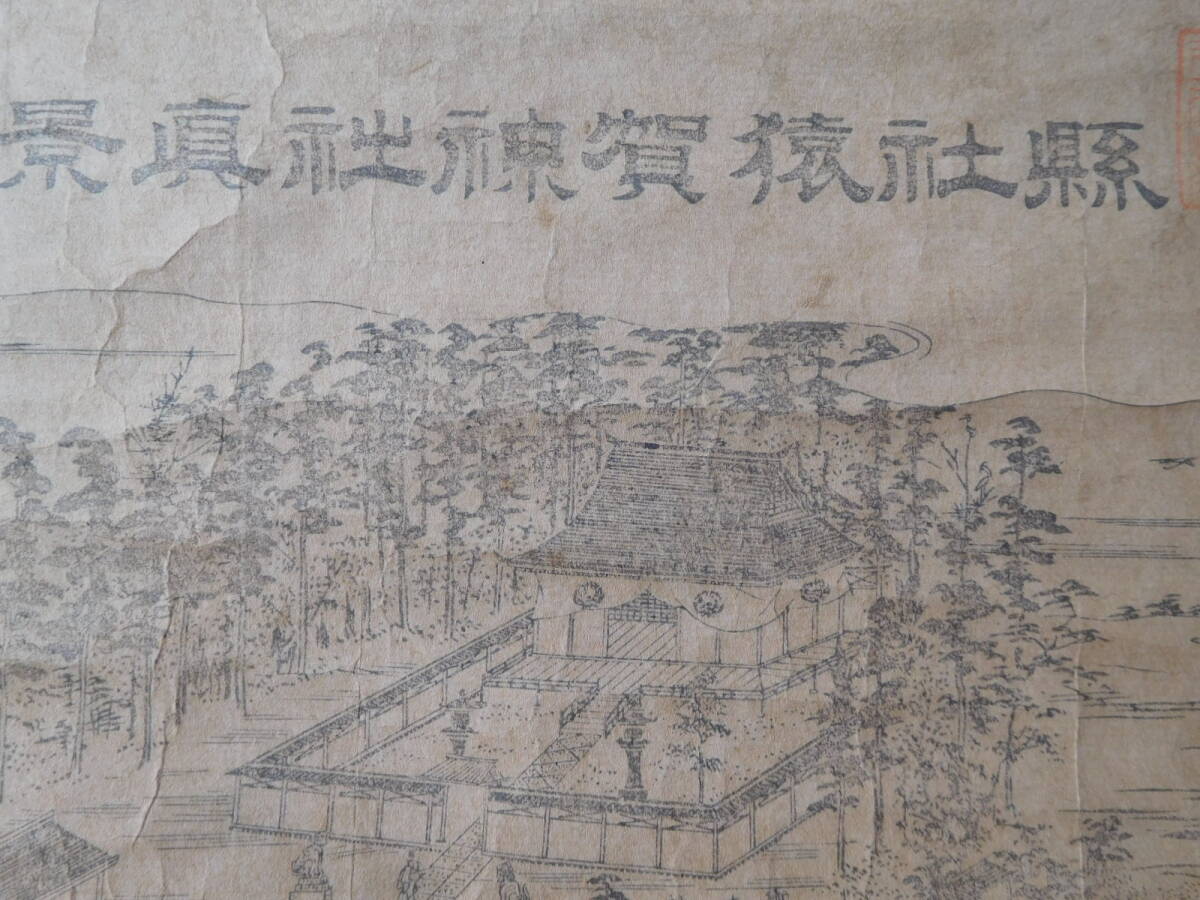 縣社猿賀神社真景